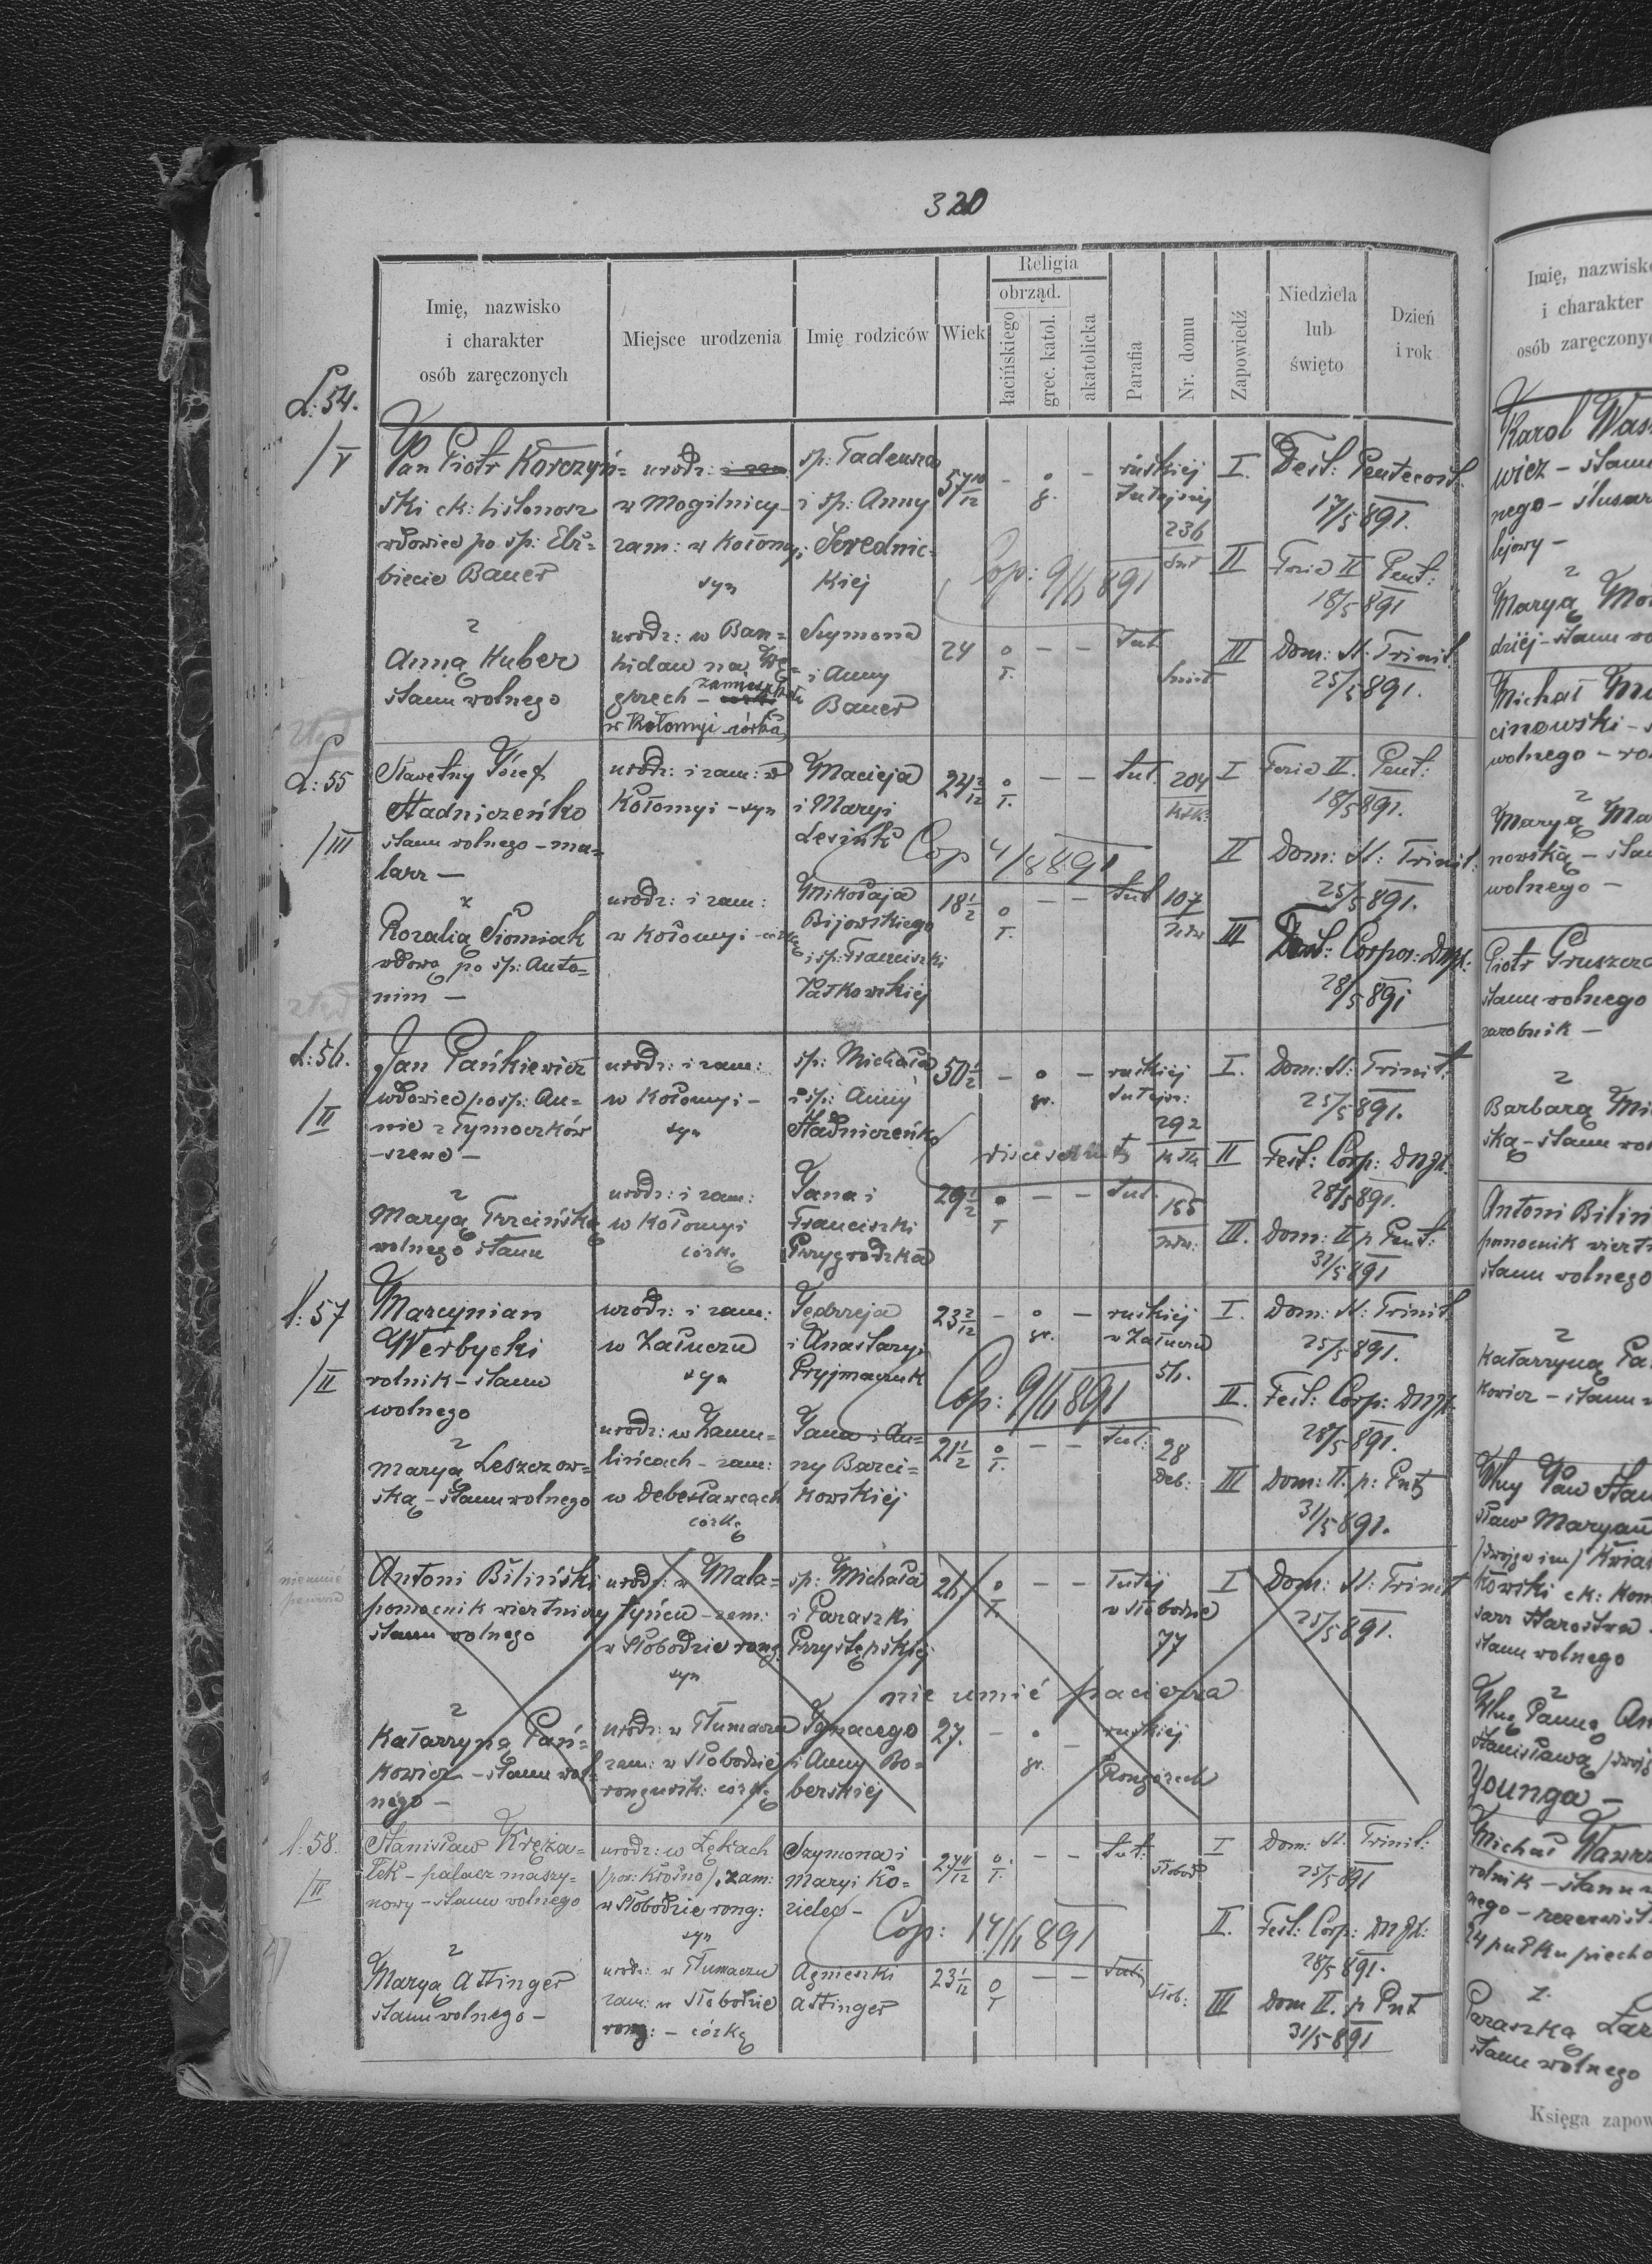 320
Imię, nazwisko
i charakter
osób zaręczonych
Miejsce urodzenia
Imię rodziców
Wiek
Religia
obrząd.
łacińskiego
grec. katol.
akatolicka
Parafia
Nr. domu
Zapowiedź
Niedziela
lub
święto
Dzień
i rok
L: 54.
/V
Pan Piotr Korczyń=
ski ck: listonosz
wdowiec po sp: Elż=
biecie Bauer
urodz:
w Mogilnicy
zam: w Kołomyi
syn
sp: Tadeusza
i sp: Anny
Serednic=
kiej
57 10/12
-
o
g.
-
ruskiej
tutejszej
236
I. Fest: Pentecost.
17/5 891.
II Feria II Pent:
18/5 891
Cop: 9/6 891
z
Anną Huber
stanu wolnego
urodz: w Ban=
hidau na Wę=
grzech - zamieszkała
w Kołomyi córką
Szymona
i Anny
Bauer
24
o
r.
- -
tut
III Dom: St: Trinit.
25/5 891.
L: 55
/III
Sławetny Józef
Stadniczeńko
stanu wolnego - ma=
larz -
urodz: i zam: w
Kołomyi - syn
Macieja
i Maryi
Lesiuk
24 3/12
o
r.
- -
tut. 204
I Feria II. Pent:
18/5 891.
Cop 4/8 891
II Dom: St: Trinit:
25/5 891.
z
Rozalią Siomiak
wdową po sp: Anto=
nim -
urodz: i zam:
w Kołomyi - córką
Mikołaja
Bijowskiego
i sp: Franciszki
Pałkowskiej
18 1/2
o
r.
- -
tut 107
III Fest: Corpor: DNJX:
28/5 891
L: 56.
/II
Jan Pańkiewicz
wdowiec po sp: An=
nie z Tymoczków
urodz: i zam:
w Kołomyi -
syn
sp: Michała
i sp: Anny
Stadniczeńko
50 1/2
-
o
gr.
-
ruskiej
tutejsz:
292
I. Dom: St: Trinit.
25/5 891.
II Fest: Corp: DNJX.
28/5 891.
z
Maryą Trzcińską
wolnego stanu
urodz: i zam:
w Kołomyi
córką
Jana i
Franciszki
Przygrodzka
29 1/2
o
r
- -
tut.
155
III. Dom: II p Pent:
31/5 891
l: 57
/II
Marcynian
Werbycki
rolnik - stanu
wolnego
urodz: i zam:
w Załuczu
syn
Jędrzeja
i Anastazyi
Pryjmaczuk
23 2/12
-
o
gr.
-
ruskiej
w Załuczu
56.
I. Dom: St: Trinit.
25/5 891.
Cop: 9/6 891
II. Fest: Corp: DNJX.
28/5 891.
z
Maryą Leszczow=
ską - stanu wolnego
urodz: w Zamu=
lińcach - zam:
w Debesławcach
córką
Jana i An=
ny Barci=
kowskiej
21 1/2
o
r.
- -
tut:
28
Deb:
III Dom: II. p: Pnt
31/5 891.
nie umie
pacierza
Antoni Biliński
pomocnik wiertniczy
stanu wolnego
urodz: w Mała=
tyńcu - zam:
w Słobodzie rong.
syn
sp: Michała
i Paraszki
Przystępskiej
26.
o
r.
- -
tutej
w Słobodzie
77
I Dom: St: Trinit
25/5 891.
nie umié pacierza
z
Katarzyną Pań=
kowicz - stanu wol=
nego -
urodz: w Tłumaczu
zam: w Słobodzie
rongursk: córką
Ignacego
i Anny Bo=
berskiej
27.
-
o
gr.
-
ruskiej
Rongurach
l: 58.
/II
Stanisław Kręża=
łek - palacz maszy=
nowy - stanu wolnego
urodz: w Łękach
(pow: Krosno), zam:
w Słobodzie rong:
syn
Szymona i
Maryi Ko=
zieleg -
27 11/12
o.
r.
- -
tut:
Słobod
I Dom: St: Trinit:
25/5 891
Cop: 14/6 891
II. Fest: Corp: DNJX:
28/5 891.
z
Maryą Attinger
stanu wolnego -
urodz: w Tłumaczu
zam: w Słobodzie
rong: - córką
Agnieszki
Attinger
23 1/12
o
r
- -
tut:
Słob:
III Dom II. p Pnt
31/5 891
Imię, nazwisko
i charakter
osób zaręczonych
Karol Was
wicz - stanu
nego - ślusar
lejowy -
z
Maryą Mo
dziéj - stanu wo
Michał Ma
cinowski - s
wolnego - ro
z
Maryą Ma
nowską - sta
wolnego -
Piotr Gruszec
stanu wolnego
zarobnik -
z
Barbarą Mi
ską - stanu wol
Antoni Bilin
pomocnik wiert
stanu wolnego
z
Katarzyną Pa
kowicz - stanu w
Wny Pan Stan
sław Maryan
(dwojga im) Kwia
kowski ck: Kom
sarz Starostwa
stanu wolnego
z
Wną Panną An
Stanisławą (dwojg
Younga -
Michał Wawrz
rolnik - stanu w
nego - rezerwist
24 pułku piecho
z
Paraszką Łaz
stanu wolnego
Księga zapow